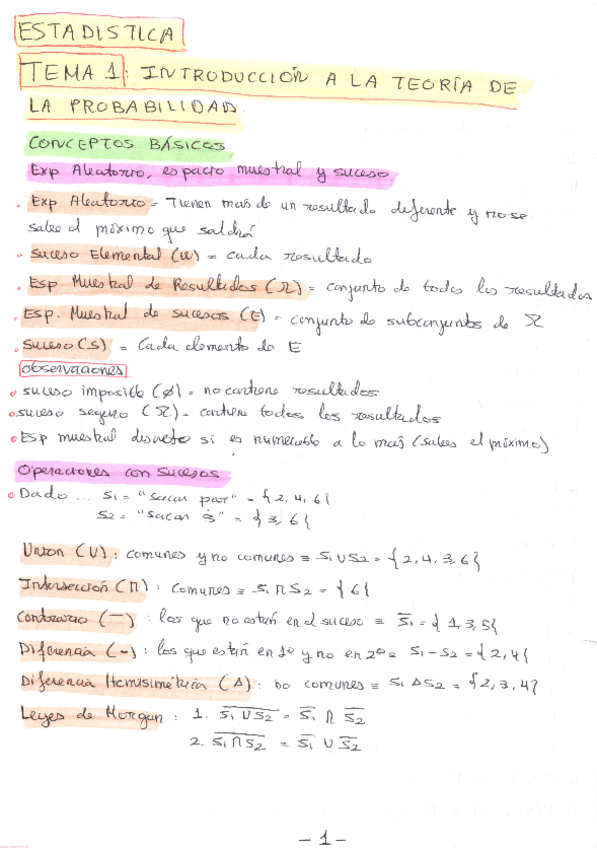 ESTADISTICA
TEMA 1: INTRODUCCIÓN A LA TEORÍA DE
LA PROBABILIDAD.
CONCEPTOS BÁSICOS
Exp Aleatorio, espacio muestral y suceso
. Exp Aleatorio = Tienen más de un resultado diferente y no se
sabe el próximo que saldrá
. Suceso Elemental (ω) = cada resultado
. Esp. Muestral de Resultados (Ω) = conjunto de todos los resultados
. Esp. Muestral de sucesos (E) = conjunto de subconjuntos de Ω
. Suceso (S) = Cada elemento de E
Observaciones
• suceso imposible (∅) = no contiene resultados
• suceso seguro (Ω) = contiene todos los resultados
• Esp muestral discreto si es numerable a lo más (sabes el próximo)
Operaciones con sucesos
• Dado ... S1 = "sacar par" = {2, 4, 6}
S2 = "sacar 3̇" = {3, 6}
Unión (U) : comunes y no comunes ≡ S1 U S2 = {2, 4, 3, 6}
Intersección (∩) : comunes ≡ S1 ∩ S2 = {6}
Contrario (—) : los que no están en el suceso ≡ S̅1 = {1, 3, 5}
Diferencia (-) : los que están en 1º y no en 2º ≡ S1 - S2 = {2, 4}
Diferencia Hemisimétrica (Δ) : no comunes ≡ S1 Δ S2 = {2, 3, 4}
Leyes de Morgan : 1. \overline{S1 U S2} = S̅1 ∩ S̅2
2. \overline{S1 ∩ S2} = S̅1 U S̅2
- 1 -